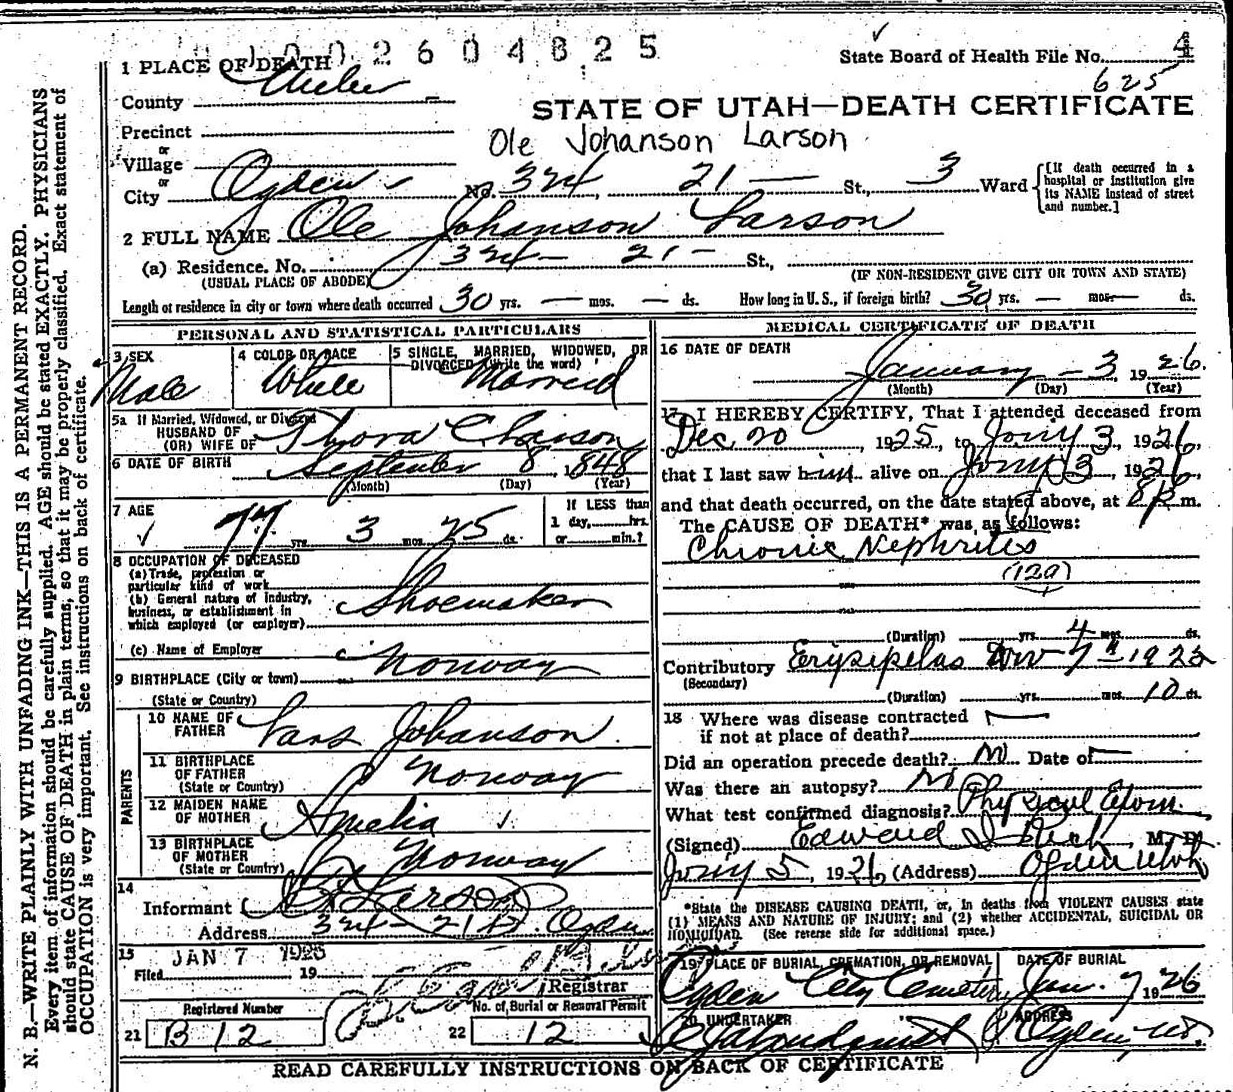 1002604825
State Board of Health File No. 4
625
1 PLACE OF DEATH
County Weber
STATE OF UTAH—DEATH CERTIFICATE
Ole Johanson Larson
Precinct
or
Village
or
City Ogden No. 324, 21 — St., 3 Ward
[If death occurred in a
hospital or institution give
its NAME instead of street
and number.]
2 FULL NAME Ole Johanson Larson
(a) Residence. No. 324 - 21 - St.,
(USUAL PLACE OF ABODE) (IF NON-RESIDENT GIVE CITY OR TOWN AND STATE)
Length of residence in city or town where death occurred 30 yrs. — mos. — ds. How long in U. S., if foreign birth? 30 yrs. — mos. — ds.
PERSONAL AND STATISTICAL PARTICULARS
3 SEX
Male
4 COLOR OR RACE
White
5 SINGLE, MARRIED, WIDOWED, OR
DIVORCED (Write the word)
Married
5a If Married, Widowed, or Divorced
HUSBAND OF
(OR) WIFE OF Thora
6 DATE OF BIRTH September 8, 1848
(Month) (Day) (Year)
7 AGE
77 yrs. 3 mos. 25 ds.
If LESS than
1 day, hrs.
or min.?
8 OCCUPATION OF DECEASED
(a) Trade, profession or
particular kind of work
(b) General nature of industry,
business, or establishment in
which employed (or employer)
Shoemaker
(c) Name of Employer
9 BIRTHPLACE (City or town) Norway
(State or Country)
PARENTS
10 NAME OF
FATHER Lars Johanson
11 BIRTHPLACE
OF FATHER
(State or Country) Norway
12 MAIDEN NAME
OF MOTHER Amelia
13 BIRTHPLACE
OF MOTHER
(State or Country) Norway
14
Informant Larson
Address 324 - 21 St. Ogden
15 JAN 7 1926
Filed 19
Registrar
Registered Number
21 B 12
No. of Burial or Removal Permit
22 12
MEDICAL CERTIFICATE OF DEATH
16 DATE OF DEATH
January - 3 1926.
(Month) (Day) (Year)
17 I HEREBY CERTIFY, That I attended deceased from
Dec 20, 1925, to Jany 3, 1926
that I last saw him alive on Jany 3, 1926
and that death occurred, on the date stated above, at 8 p m.
The CAUSE OF DEATH* was as follows:
Chronic Nephritis
(129)
(Duration) yrs. 4 mos. ds.
Contributory Erysipelas Nov 7th 1925
(Secondary)
(Duration) yrs. mos. 10 ds.
18 Where was disease contracted
if not at place of death?
Did an operation precede death? No Date of —
Was there an autopsy? No
What test confirmed diagnosis? Physical Exam.
(Signed) Edward I. Rich M. D.
Jany 5, 1926 (Address) Ogden Utah
*State the DISEASE CAUSING DEATH, or, in deaths from VIOLENT CAUSES state
(1) MEANS AND NATURE OF INJURY; and (2) whether ACCIDENTAL, SUICIDAL OR
HOMICIDAL. (See reverse side for additional space.)
19 PLACE OF BURIAL, CREMATION, OR REMOVAL
Ogden City Cemetery
DATE OF BURIAL
Jan. 7 1926
20 UNDERTAKER
ADDRESS
Ogden, Ut.
READ CAREFULLY INSTRUCTIONS ON BACK OF CERTIFICATE
N. B.—WRITE PLAINLY WITH UNFADING INK—THIS IS A PERMANENT RECORD.
Every item of information should be carefully supplied. AGE should be stated EXACTLY. PHYSICIANS
should state CAUSE OF DEATH in plain terms, so that it may be properly classified. Exact statement of
OCCUPATION is very important. See instructions on back of certificate.